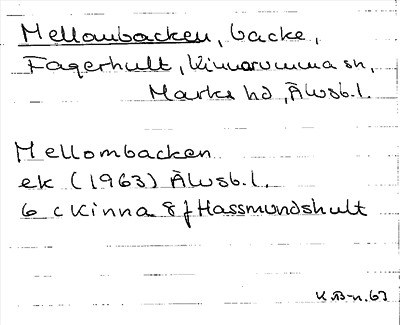 Mellombacken, backe,
Fagerhult, Kinnarumma sn,
Marks hd, Älvsb.l.
Mellombacken
ek (1963) Älvsb.l.
6 c Kinna 8 f Hassmundshult
K.B-n. 63